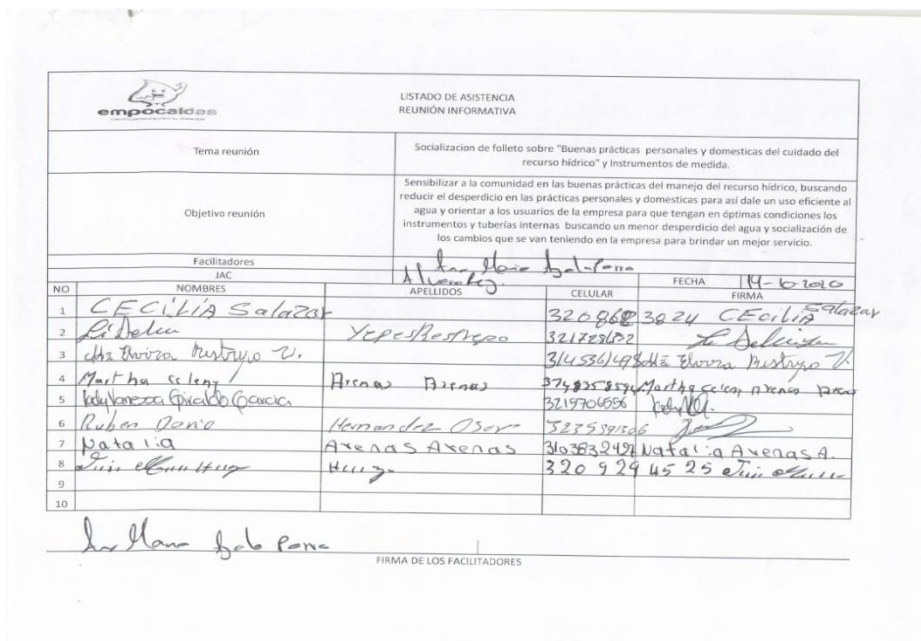 empocaldas
LISTADO DE ASISTENCIA
REUNIÓN INFORMATIVA
Tema reunión
Socializacion de folleto sobre "Buenas prácticas personales y domesticas del cuidado del
recurso hídrico" y Instrumentos de medida.
Objetivo reunión
Sensibilizar a la comunidad en las buenas prácticas del manejo del recurso hídrico, buscando
reducir el desperdicio en las prácticas personales y domesticas para así dale un uso eficiente al
agua y orientar a los usuarios de la empresa para que tengan en óptimas condiciones los
instrumentos y tuberías internas buscando un menor desperdicio del agua y socialización de
los cambios que se van teniendo en la empresa para brindar un mejor servicio.
Facilitadores
JAC
Alvarez
FECHA
NO NOMBRES APELLIDOS CELULAR FIRMA
1 CECiLiA Salazar 320 868 3824 CEciliA Salazar
2 Yepes Restrepo
3 Elvira Restrepo V. Elvira Restrepo V.
4 Martha Arenas Arenas Martha Arenas
5 Vanessa Giraldo Garcia 3219706556
6 Ruben Dario Hernandez
7 Natalia Arenas Arenas Natalia Arenas A.
8 320 929 45 25
9
10
FIRMA DE LOS FACILITADORES